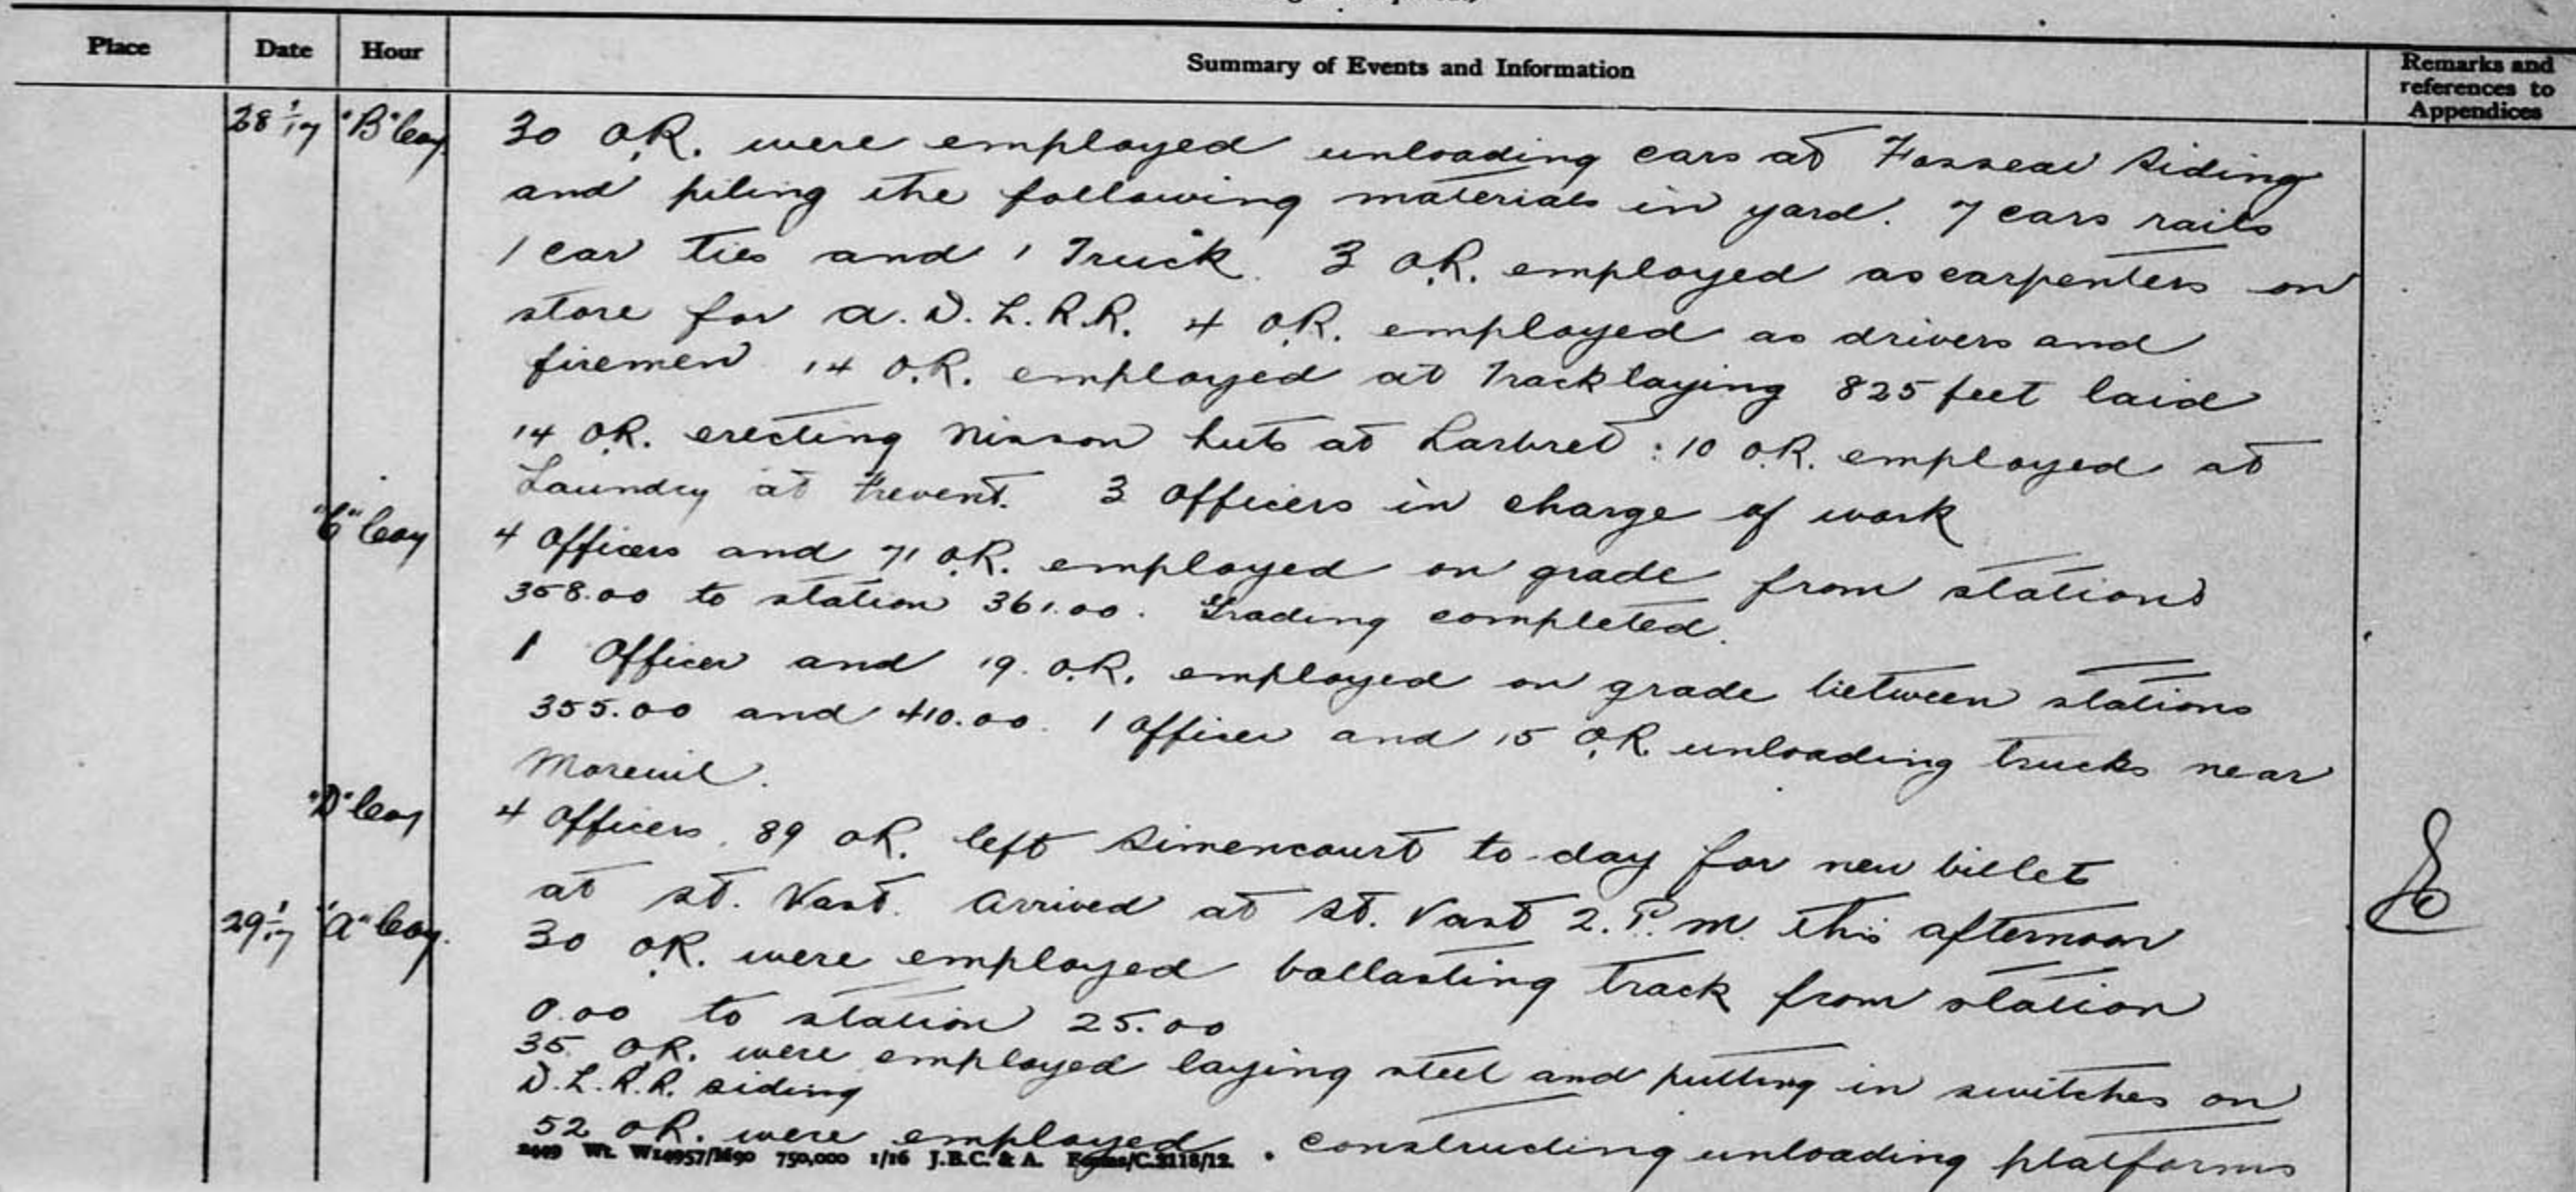 Place Date Hour Summary of Events and Information Remarks and references to Appendices
28 1/17 "B" Coy. 30 O.R. were employed unloading cars at Fosseau Siding
and piling the following materials in yard. 7 cars rails
1 car ties and 1 Truck. 3 O.R. employed as carpenters on
store for A.D.L.R.R. 4 O.R. employed as drivers and
firemen 14 O.R. employed at Tracklaying 825 feet laid
14 O.R. erecting Nisson huts at Larbret : 10 O.R. employed at
Laundry at Frevent. 3 Officers in charge of work
"C" Coy 4 Officers and 71 O.R. employed on grade from stations
358.00 to station 361.00. Grading completed.
1 Officer and 19. O.R. employed on grade between stations
355.00 and 410.00. 1 Officer and 15 O.R. unloading trucks near
Moreuil.
"D" Coy 4 Officers, 89 O.R. left Simencourt to-day for new billet
at St. Vast. Arrived at St. Vast 2. P.M. this afternoon
29 1/17 "A" Coy. 30 O.R. were employed ballasting track from station
0.00 to station 25.00
35 O.R. were employed laying steel and putting in switches on
D.L.R.R. siding
52 O.R. were employed . constructing unloading platforms
2449 Wt. W14957/M90 750,000 1/16 J.B.C. & A. Forms/C.2118/12.